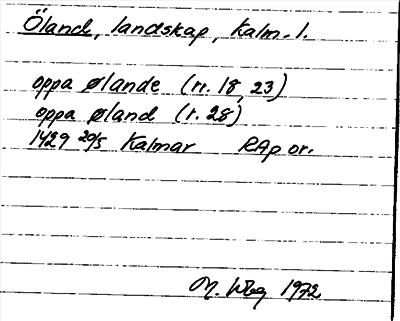 Öland, landskap, Kalm. l.
oppa ølande (rr. 18, 23)
oppa øland (r. 28)
1429 20/5 Kalmar RAp or.
M. Wbg 1972